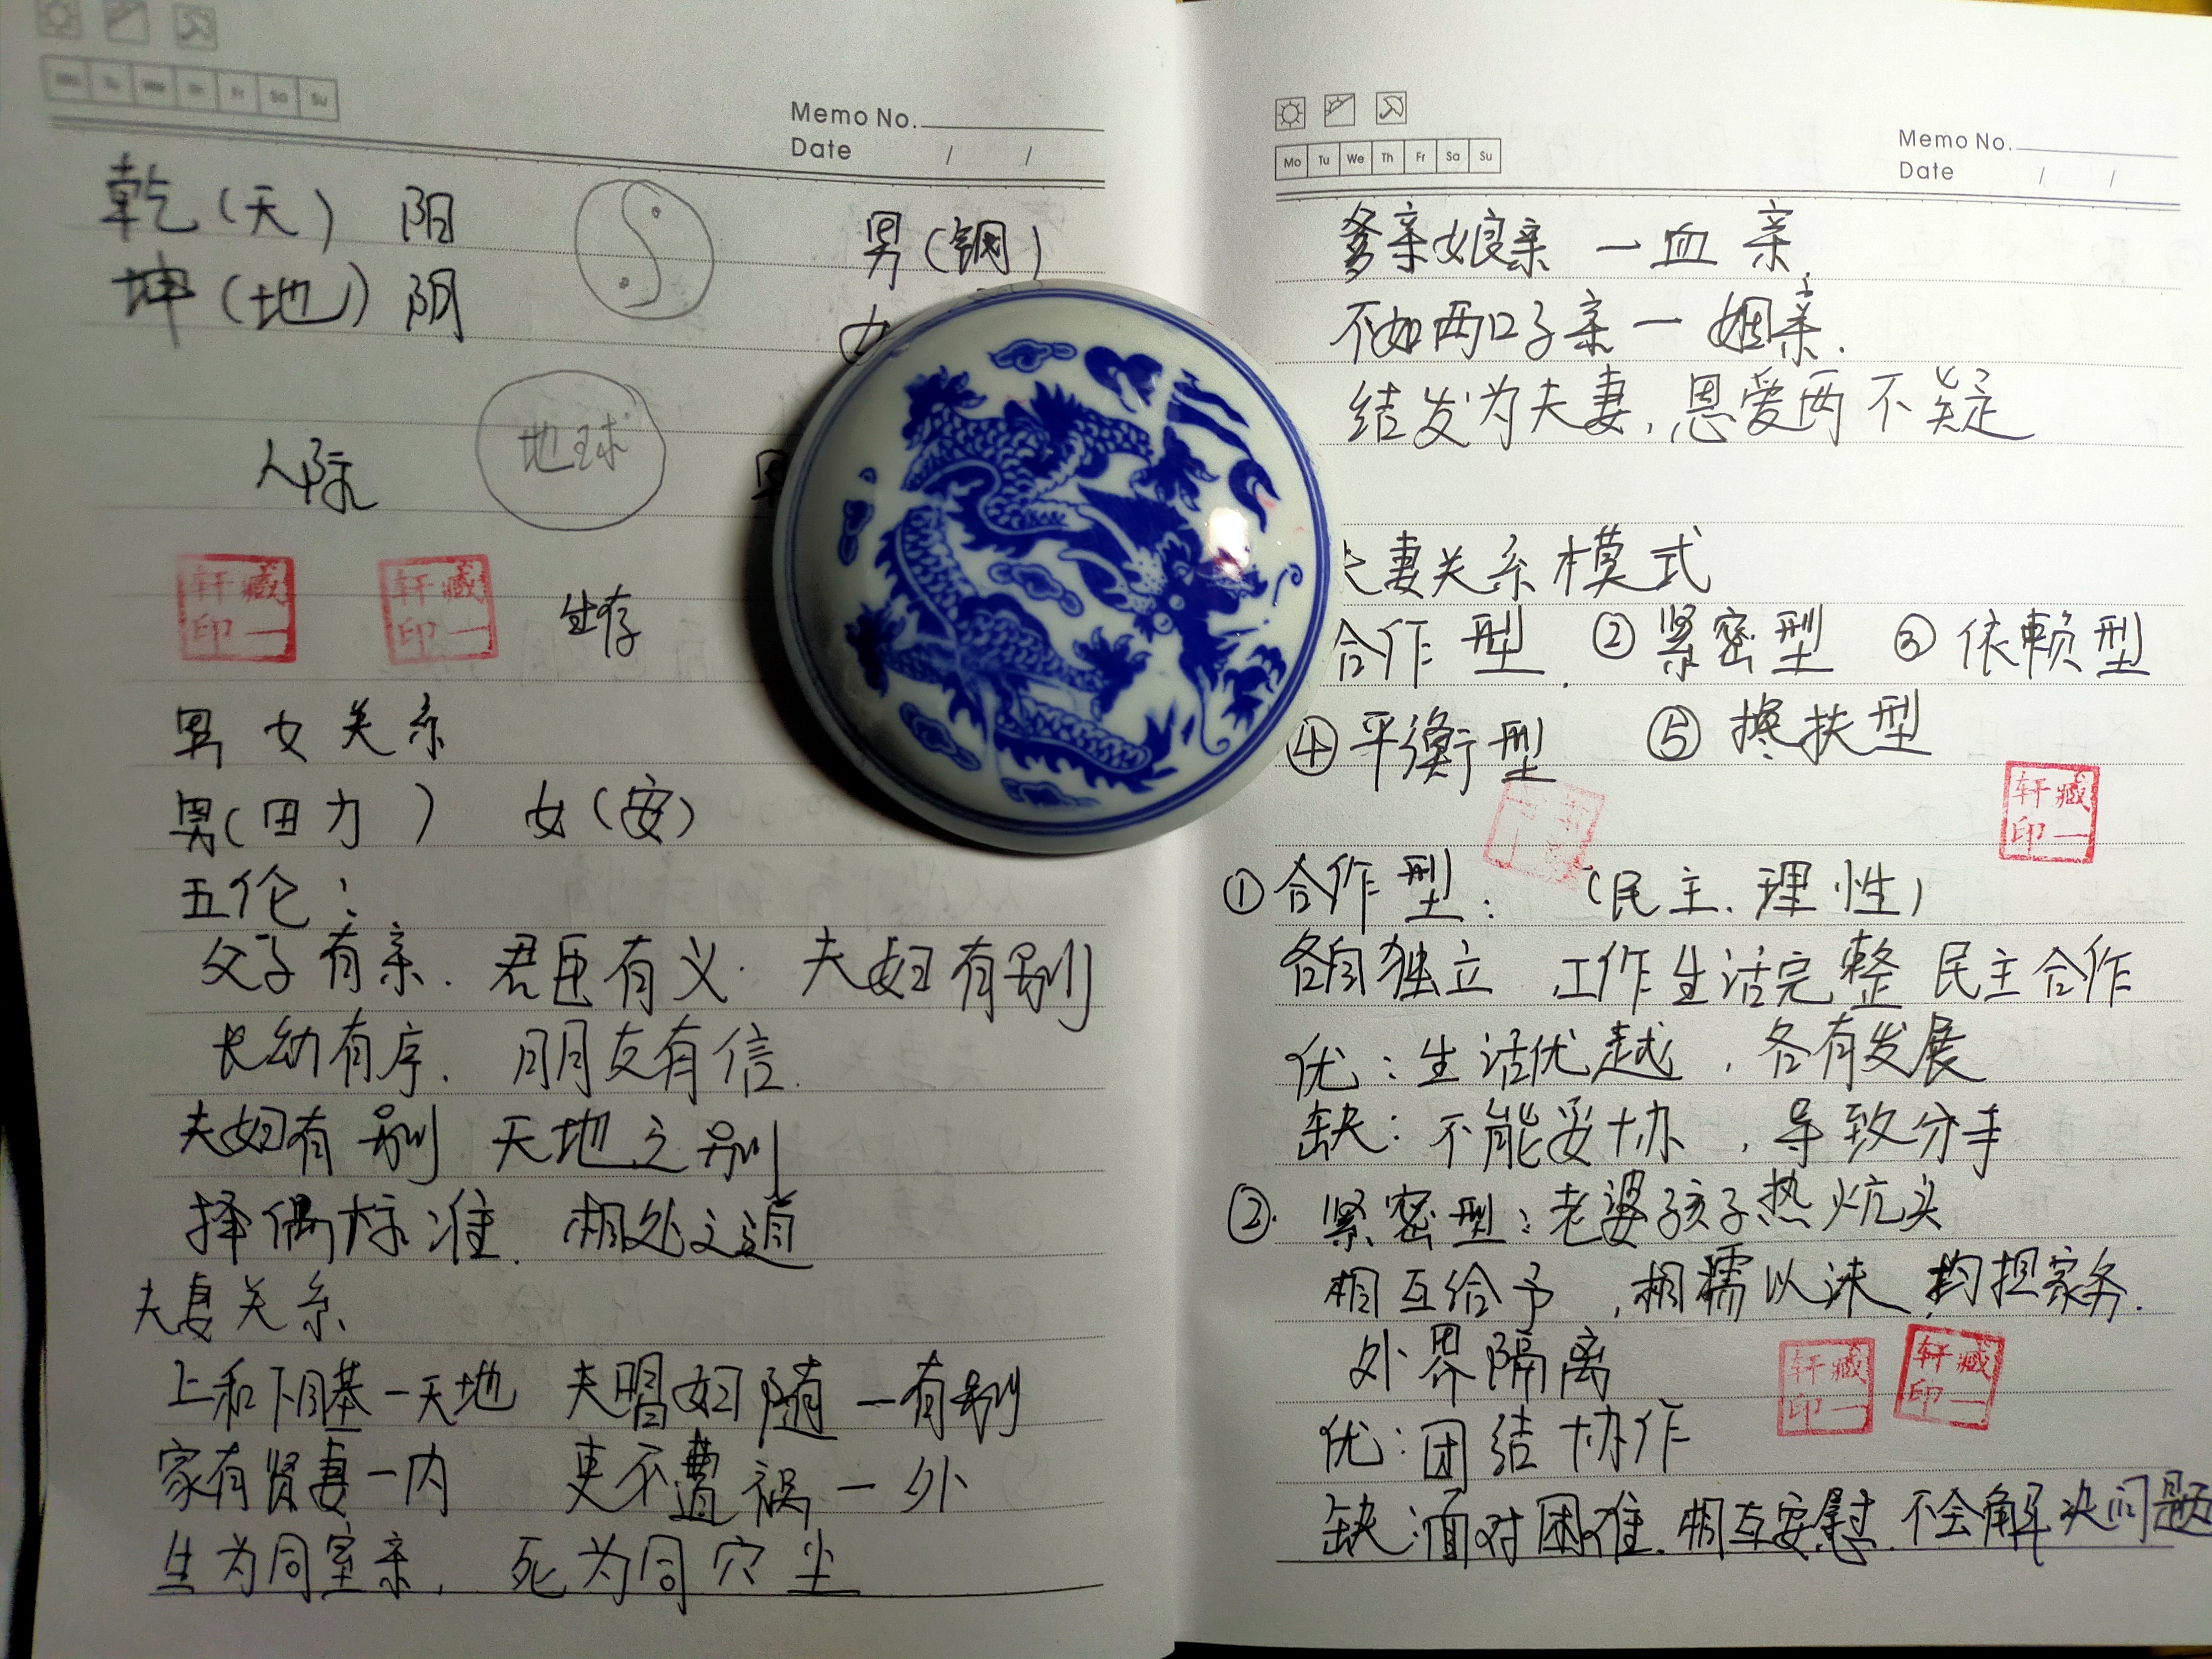 Memo No.
Date / /
乾(天) 阳
坤(地) 阴
男(钢)
地球
人际
轩藏
印一
轩藏
印一
生存
男女关系
男(田力) 女(安)
五伦:
父子有亲. 君臣有义. 夫妇有别
长幼有序. 朋友有信.
夫妇有别 天地之别
择偶标准. 相处之道
夫妻关系
上和下睦一天地 夫唱妇随一有别
家有贤妻一内 更不遭祸一外
生为同室亲, 死为同穴尘
Mo Tu We Th Fr Sa Su
Memo No.
Date / /
爹亲娘亲一血亲.
不如两口子亲一姻亲.
结发为夫妻,恩爱两不疑
妻关系模式
合作型. ②紧密型 ③依赖型
④平衡型 ⑤搀扶型
轩藏
印一
①合作型: (民主、理性)
各自独立 工作生活完整 民主合作
优:生活优越,各有发展
缺:不能妥协,导致分手
②. 紧密型:老婆孩子热炕头
相互给予,相濡以沫,均担家务.
外界隔离
轩藏
印一
轩藏
印一
优:团结协作
缺:面对困难.相互安慰.不会解决问题